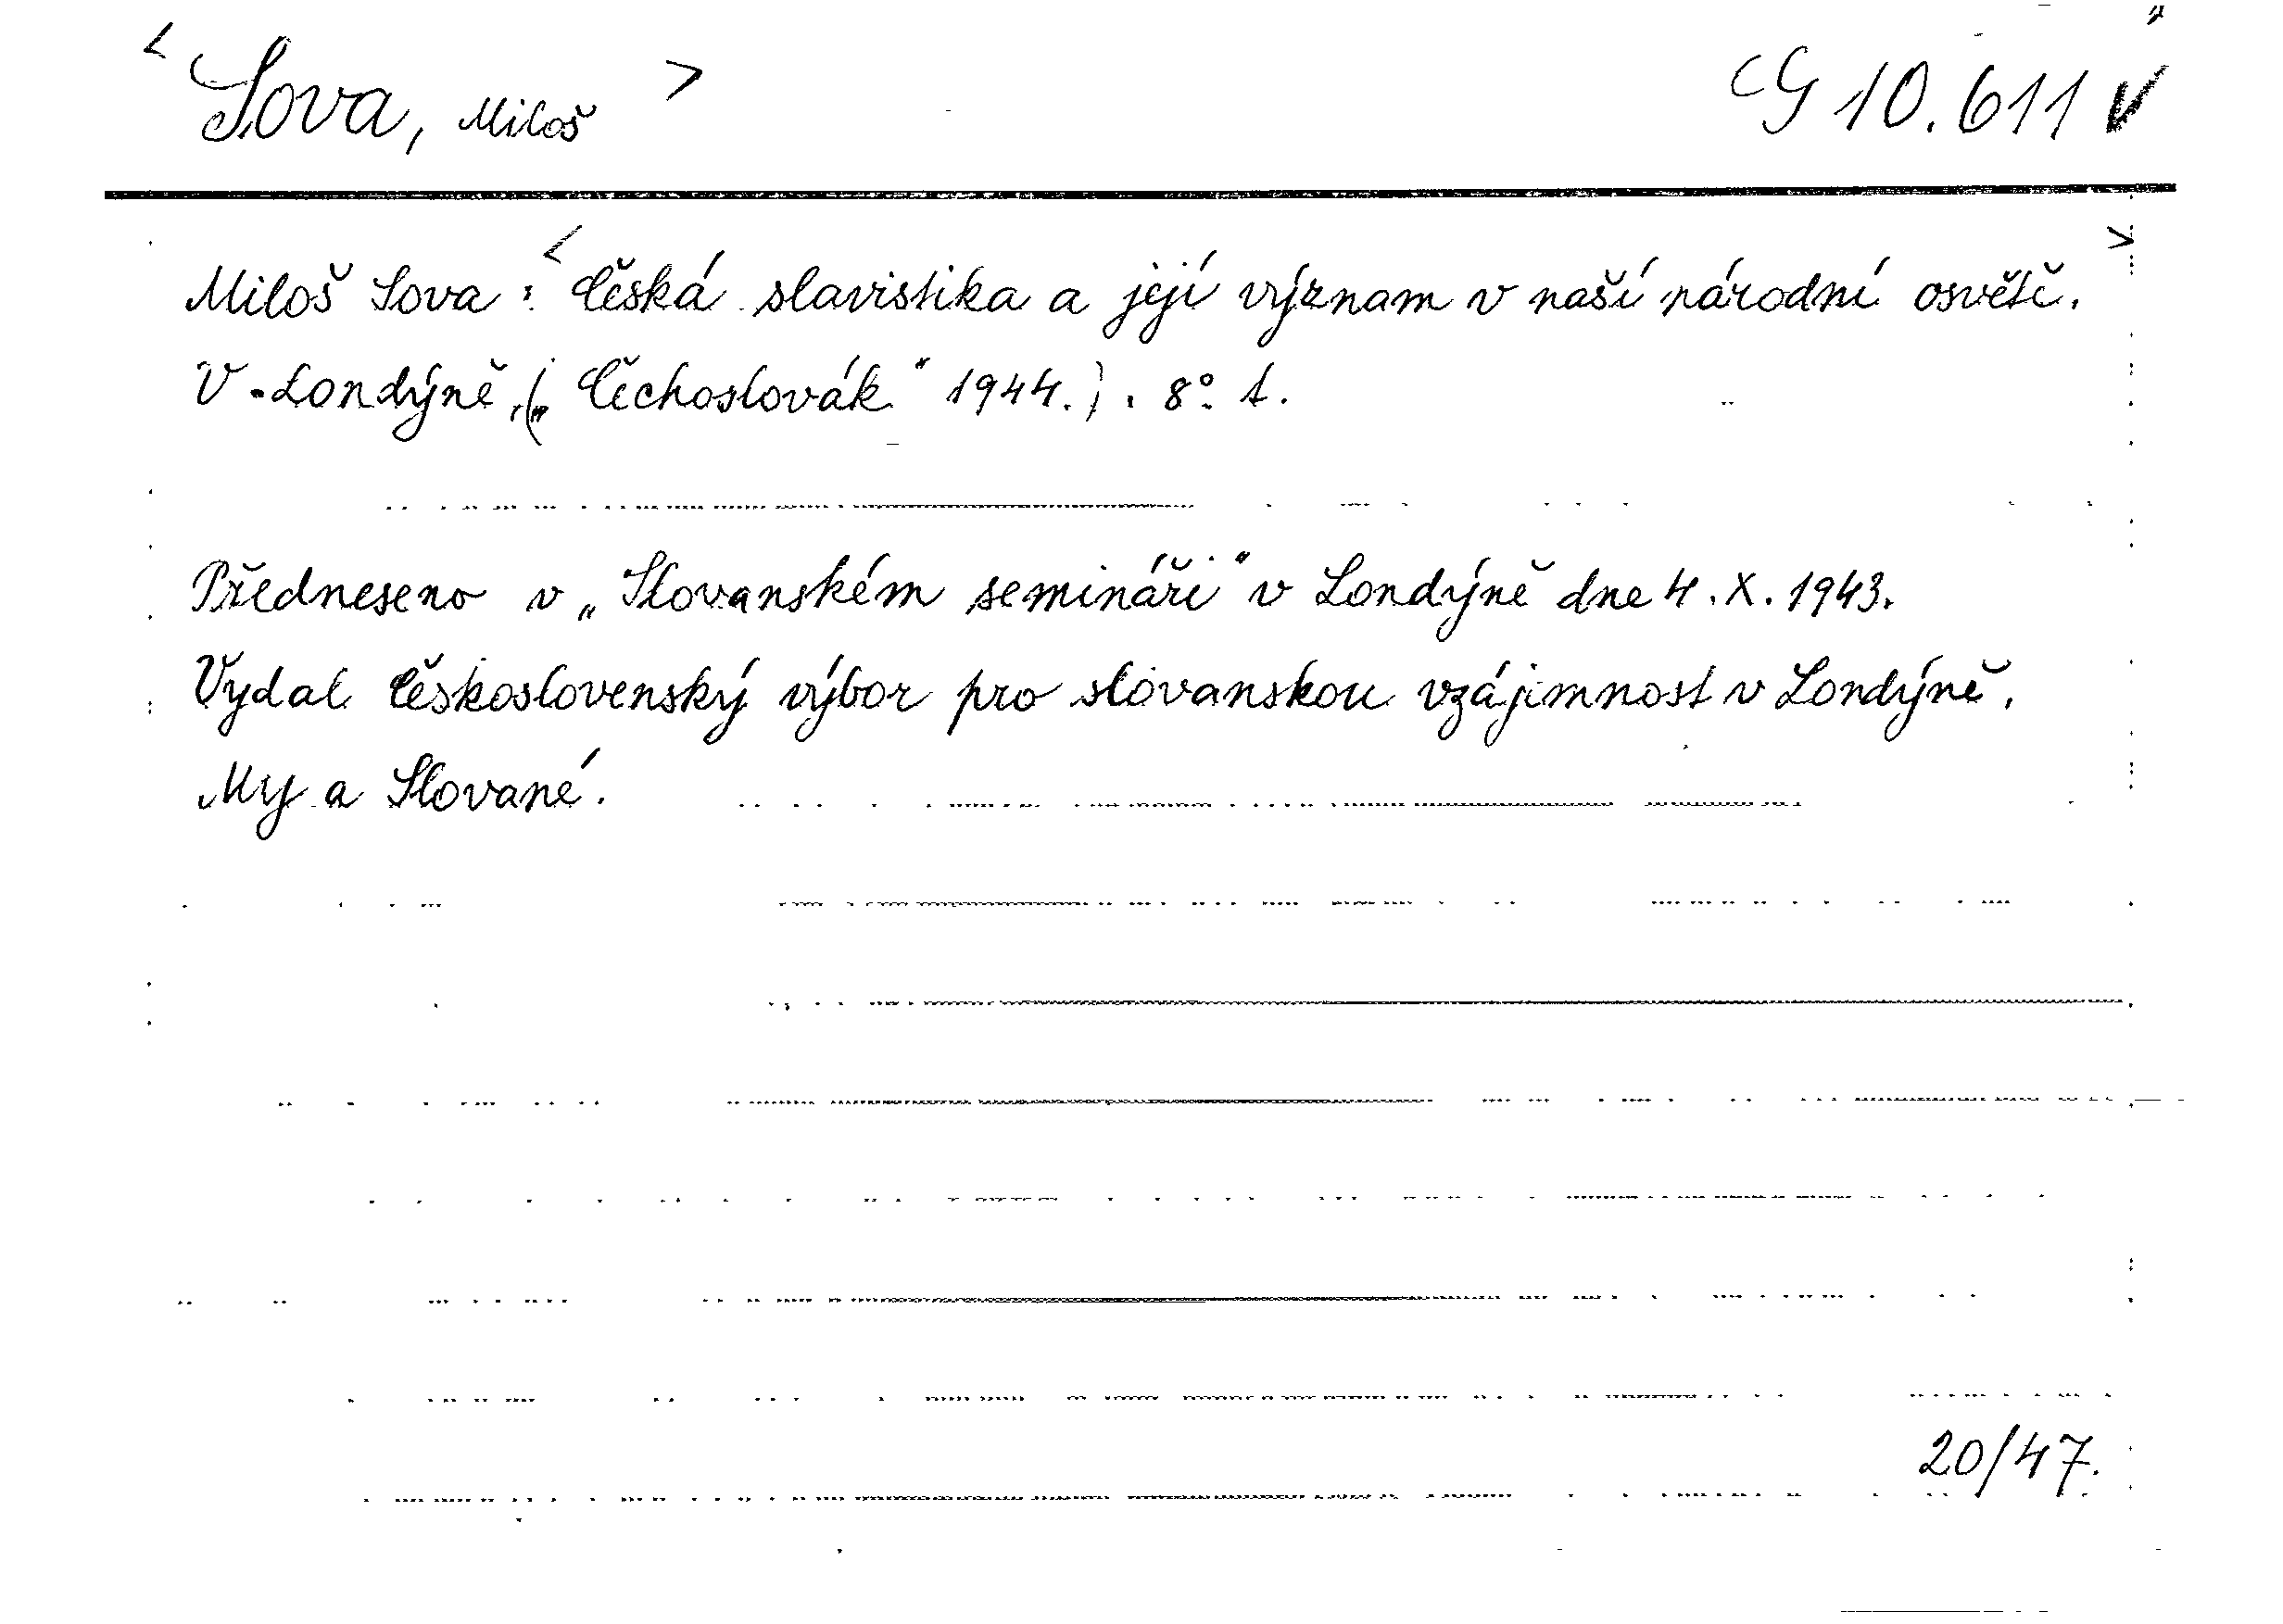 < Sova, Miloš > G 10.611 V
Miloš Sova: <Česká slavistika a její význam v naší národní osvětě. >
V Londýně, („Čechoslovák" 1944.). 8° 1.
Předneseno v „Slovanském semináři" v Londýně dne 4. X. 1943.
Vydal Československý výbor pro slovanskou vzájimnost v Londýně.
My a Slované.
20/47.